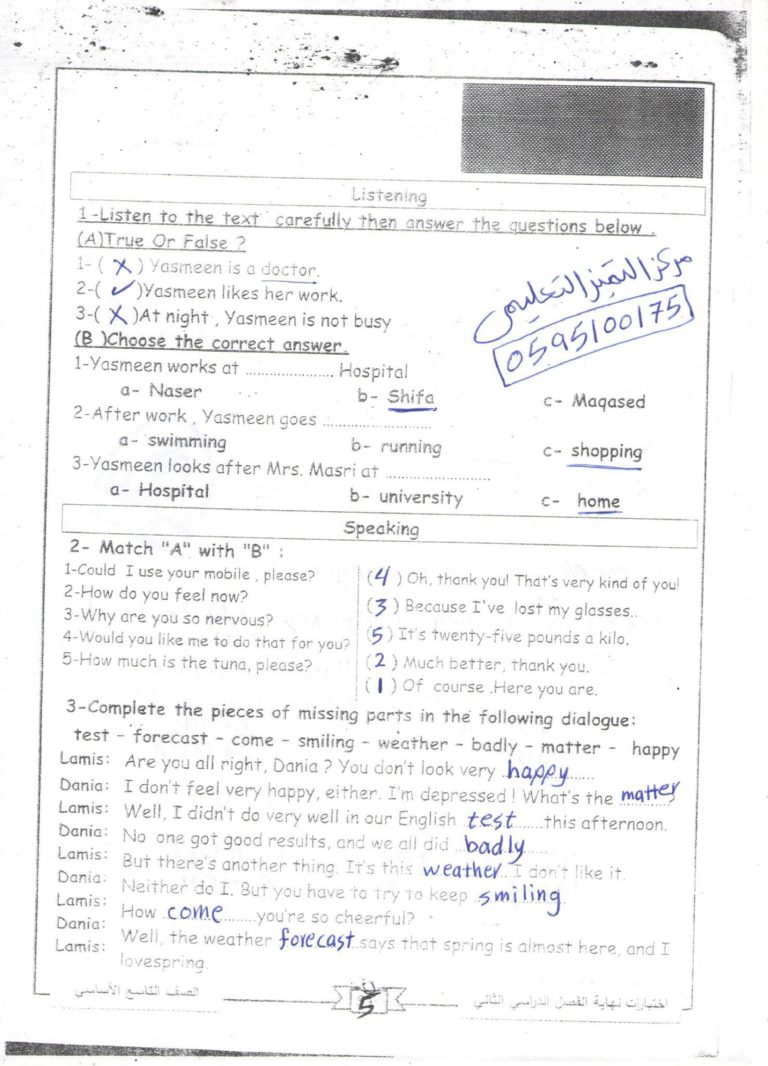 Listening
1-Listen to the text carefully then answer the questions below .
(A)True Or False ?
1- ( X ) Yasmeen is a doctor.
2-( ✓ )Yasmeen likes her work.
3-( X )At night , Yasmeen is not busy
مركز التميز التعليمي
0595100175
(B )Choose the correct answer.
1-Yasmeen works at ..................... Hospital
a- Naser b- Shifa c- Maqased
2-After work , Yasmeen goes ..........................
a- swimming b- running c- shopping
3-Yasmeen looks after Mrs. Masri at .........................
a- Hospital b- university c- home
Speaking
2- Match "A" with "B" :
1-Could I use your mobile , please? (4) Oh, thank you! That's very kind of you!
2-How do you feel now? (3) Because I've lost my glasses..
3-Why are you so nervous? (5) It's twenty-five pounds a kilo.
4-Would you like me to do that for you? (2) Much better, thank you.
5-How much is the tuna, please? (1) Of course .Here you are.
3-Complete the pieces of missing parts in the following dialogue:
test - forecast - come - smiling - weather - badly - matter - happy
Lamis: Are you all right, Dania ? You don't look very .happy......
Dania: I don't feel very happy, either. I'm depressed ! What's the matter?
Lamis: Well, I didn't do very well in our English test......this afternoon.
Dania: No one got good results, and we all did ..badly....
Lamis: But there's another thing. It's this weather.. I don't like it.
Dania: Neither do I. But you have to try to keep .smiling
Lamis: How .come........you're so cheerful?
Dania: Well, the weather forecast says that spring is almost here, and I
Lamis: lovespring.
الصف التاسع الأساسي 5 اختبارات نهاية الفصل الدراسي الثاني